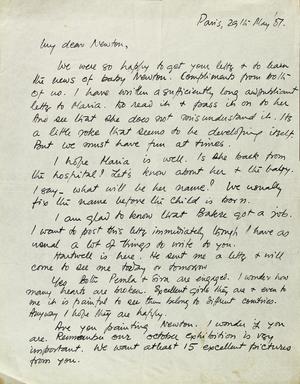 Paris, 29th May '57.
My dear Newton,
We were so happy to get your letter & to learn
the news of baby Newton. Compliments from both
of us. I have written a sufficiently long
letter to Maria. Do read it & pass it on to her
And see that she does not misunderstand it. Its
a little joke that seems to be developing itself
But we must have fun at times.
I hope Maria is well. Is she back from
the hospital? Let's know about her & the baby.
I say - what will be her name? We usually
fix the name before the child is born.
I am glad to know that Bakre got a job.
I want to post this letter immediately though I have as
usual a lot of things to write to you.
Hartwell is here. He sent me a letter & will
come to see me today or tomorrow
Yes Both & are engaged. I wonder how
many hearts are broken. Excellent girls they are & even to
me it is painful to see them belong to different countries.
Anyway I hope they are happy.
Are you painting Newton. I wonder if you
are. Remember our october exhibition is very
important. We want at least 15 excellent pictures
from you.